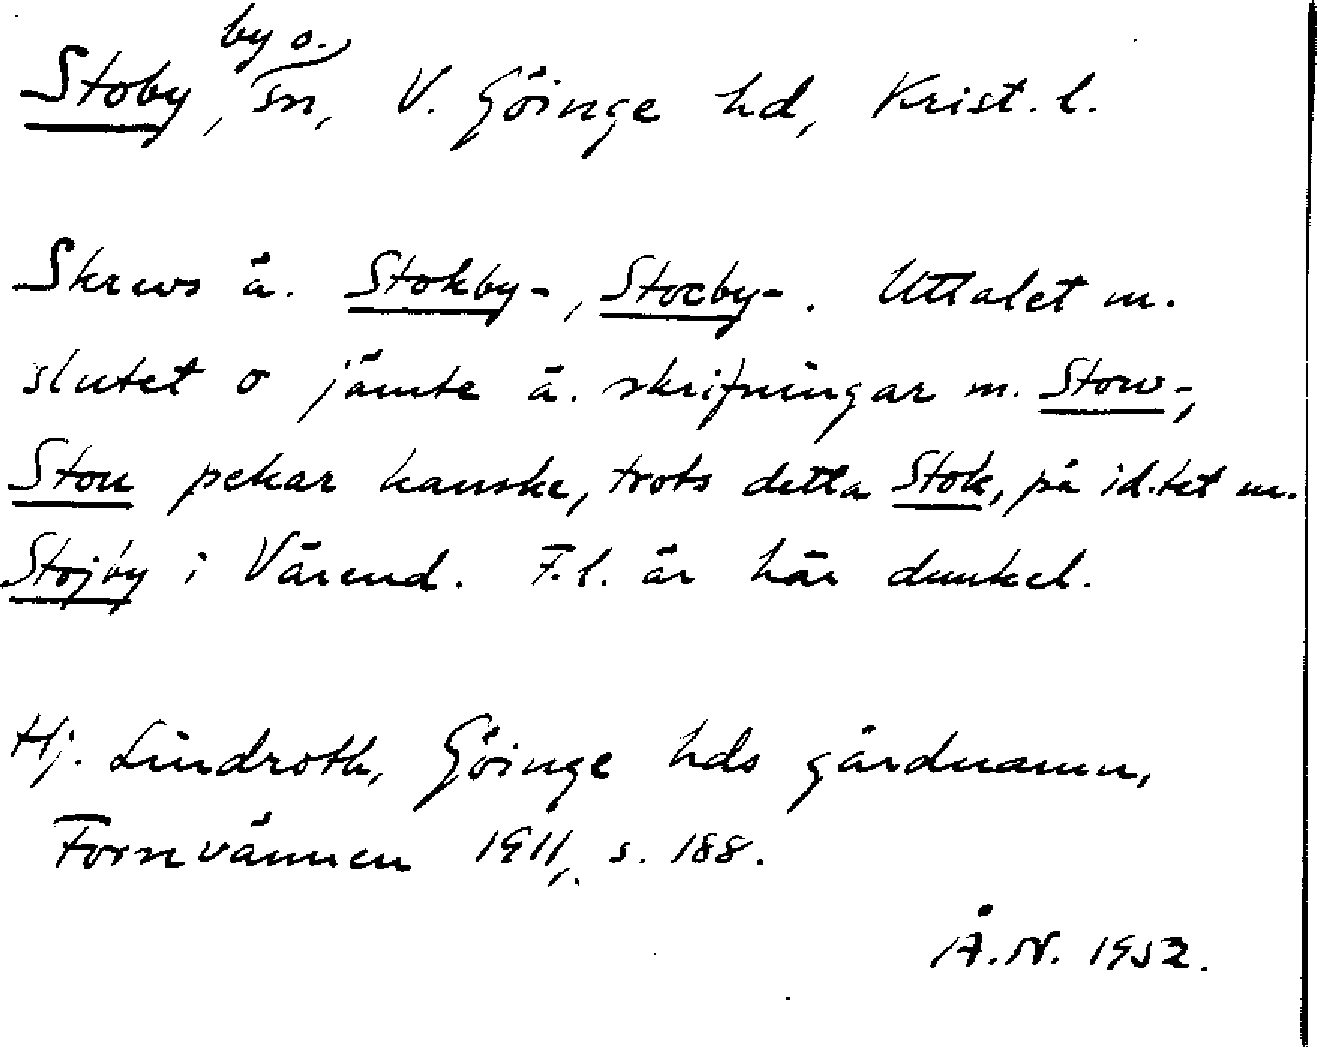 Stoby, by o. sn, V. Göinge hd, Krist. l.
Skrevs ä. Stokby-, Stocby-. Uttalet m.
slutet o jämte ä. skrifningar m. Stow-,
Stou pekar kanske, trots detta Stok, på id.tet m.
Stojby i Värend. F.l. är här dunkel.
Hj. Lindroth, Göinge hds gårdnamn,
Fornvännen 1911, s. 188.
Å.N. 1952.